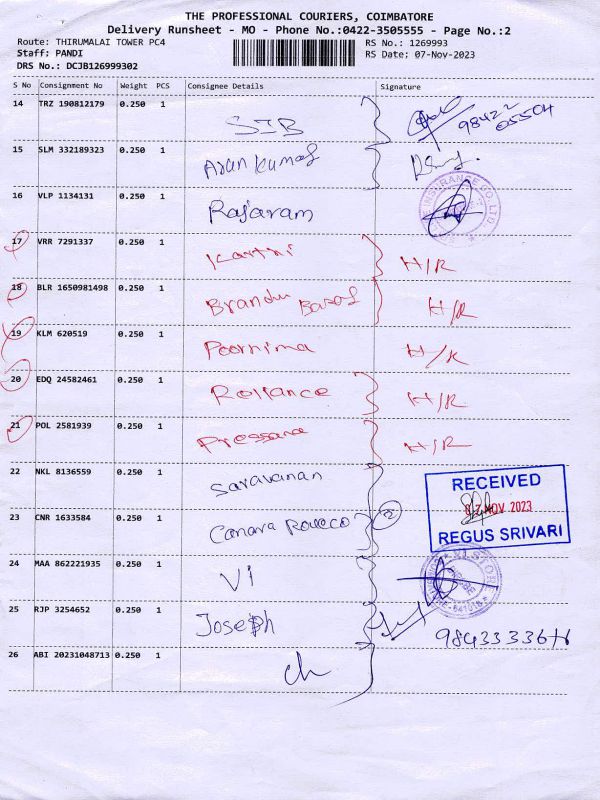 THE PROFESSIONAL COURIERS, COIMBATORE
Delivery Runsheet - MO - Phone No.:0422-3505555 - Page No.:2
Route: THIRUMALAI TOWER PC4 RS No.: 1269993
Staff: PANDI RS Date: 07-Nov-2023
DRS No.: DCJB126999302
S No Consignment No Weight PCS Consignee Details Signature
14 TRZ 190812179 0.250 1 SIB 98422
05504
15 SLM 332189323 0.250 1 Arun kumar
16 VLP 1134131 0.250 1 Rajaram
INSURANCE CO. LTD.
17 VRR 7291337 0.250 1 Karthi H/R
18 BLR 1650981498 0.250 1 H/R
19 KLM 620519 0.250 1 Poornima H/R
20 EDQ 24582461 0.250 1 Reliance H/R
21 POL 2581939 0.250 1 Prassana H/R
22 NKL 8136559 0.250 1 Saravanan
RECEIVED
07 NOV 2023
REGUS SRIVARI
23 CNR 1633584 0.250 1 Canara Roveco 2
24 MAA 862221935 0.250 1 Vi
VI STORE
641018
25 RJP 3254652 0.250 1 Joseph
26 ABI 20231048713 0.250 1 ch